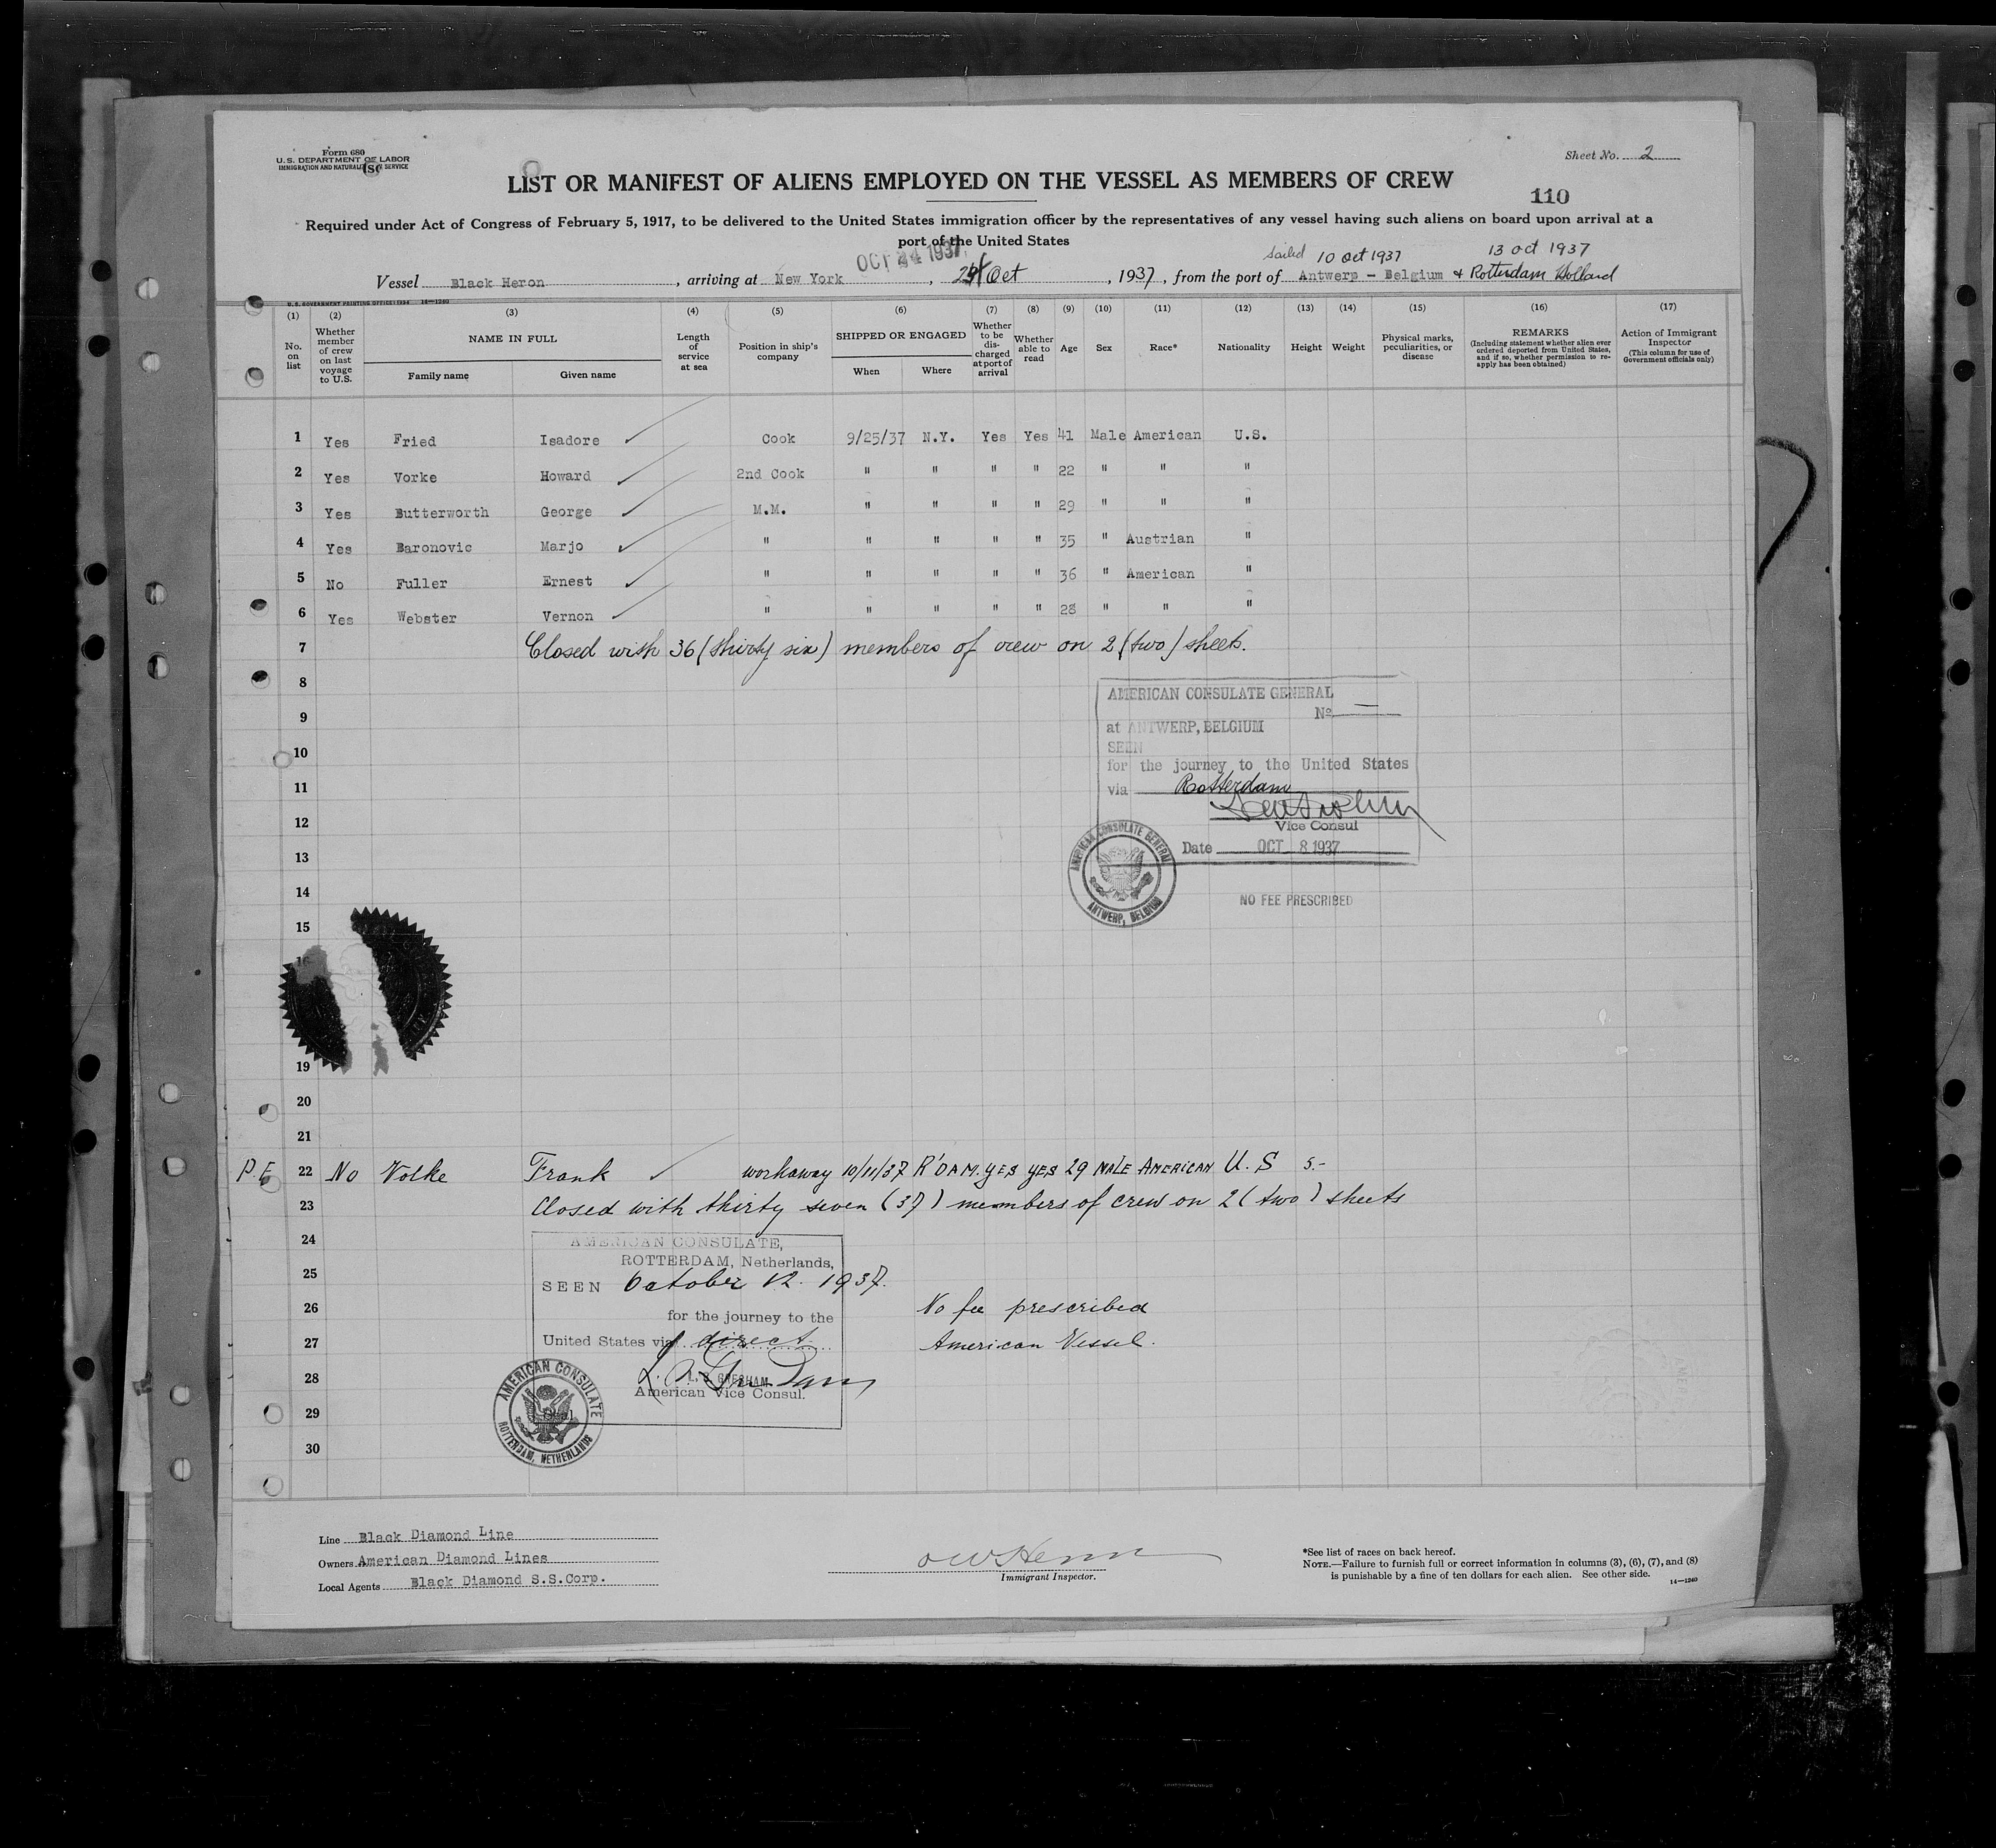 Form 680
U.S. DEPARTMENT OF LABOR
IMMIGRATION AND NATURALIZATION SERVICE
Sheet No. 2
LIST OR MANIFEST OF ALIENS EMPLOYED ON THE VESSEL AS MEMBERS OF CREW
110
Required under Act of Congress of February 5, 1917, to be delivered to the United States immigration officer by the representatives of any vessel having such aliens on board upon arrival at a
port of the United States
OCT 24 1937 sailed 10 Oct 1937 13 oct 1937
Vessel Black Heron, arriving at New York, 24 Oct, 1937, from the port of Antwerp - Belgium & Rotterdam Holland
U.S. GOVERNMENT PRINTING OFFICE: 1934 14—1240
(1) (2) (3) (4) (5) (6) (7) (8) (9) (10) (11) (12) (13) (14) (15) (16) (17)
No. on list
Whether member of crew on last voyage to U.S.
NAME IN FULL
Family name Given name
Length of service at sea
Position in ship's company
SHIPPED OR ENGAGED
When Where
Whether to be discharged at port of arrival
Whether able to read
Age
Sex
Race*
Nationality
Height
Weight
Physical marks, peculiarities, or disease
REMARKS
(Including statement whether alien ever ordered deported from United States, and if so, whether permission to reapply has been obtained)
Action of Immigrant Inspector
(This column for use of Government officials only)
1 Yes Fried Isadore Cook 9/25/37 N.Y. Yes Yes 41 Male American U.S.
2 Yes Vorke Howard 2nd Cook " " " " 22 " " "
3 Yes Butterworth George M.M. " " " " 29 " " "
4 Yes Baronovic Marjo " " " " " 35 " Austrian "
5 No Fuller Ernest " " " " " 36 " American "
6 Yes Webster Vernon " " " " " 28 " " "
7 Closed with 36 (thirty six) members of crew on 2 (two) sheets.
8
AMERICAN CONSULATE GENERAL
9
No —
at ANTWERP, BELGIUM
SEEN
10
for the journey to the United States
11
via Rotterdam
12
Vice Consul
13
Date OCT 8 1937
AMERICAN CONSULATE GENERAL
ANTWERP, BELGIUM
14
NO FEE PRESCRIBED
15
16
19
20
21
P.E. 22 No Volke Frank workaway 10/11/37 R'DAM. YES YES 29 MALE AMERICAN U.S 5.-
23 Closed with thirty seven (37) members of crew on 2 (two) sheets
24
AMERICAN CONSULATE,
ROTTERDAM, Netherlands,
25
SEEN October 12. 1937.
26 No fee prescribed
for the journey to the
27 American Vessel.
United States via direct
28
L. S. GRESHAM
American Vice Consul.
29
Seal
AMERICAN CONSULATE
ROTTERDAM, NETHERLANDS
30
Line Black Diamond Line
Owners American Diamond Lines
Local Agents Black Diamond S.S.Corp.
Immigrant Inspector.
*See list of races on back hereof.
NOTE.—Failure to furnish full or correct information in columns (3), (6), (7), and (8)
is punishable by a fine of ten dollars for each alien. See other side.
14—1240